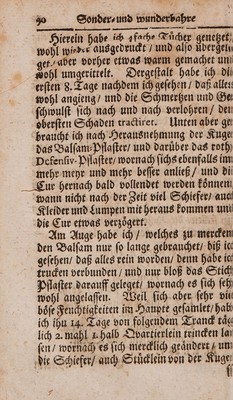 90 Sonder- und wunderbahre
Hierein habe ich 4fache Tücher genetzet,
wohl wieder ausgedruckt / und also übergele-
get / aber vorher etwas warm gemacher un
wohl umgerittelt. Dergestalt habe ich di
ersten 8. Tage nachdem ich gesehen / daß alles
wohl angieng / und die Schmertzen und Ge
schwulst sich nach und nach verlohren / den
obersten Schaden tractiret. Unten aber ge
braucht ich nach Herausnehmung der Kuge
das Balsam-Pflaster / und darüber das rothe
Defensiv-Pflaster / wornach sichs ebenfalls im
mehr meyr und mehr besser anließ / und di
Cur hernach bald vollendet werden können
wann nicht nach der Zeit viel Schiefer / auch
Kleider und Lumpen mit heraus kommen und
die Cur etwas verzögert.
Am Auge habe ich / welches zu mercken
den Balsam nur so lange gebrauchet / biß ich
gesehen / daß alles rein worden / denn habe ich
trucken verbunden / und nur bloß das Stich
Pflaster darauff geleget / wornach es sich seh
wohl angelassen. Weil sich aber sehr vie
böse Feuchtigkeiten im Haupte gesamlet / hab
ich ihn 14. Tage von folgendem Tranck täg
lich 2. mahl 1. halb Quartierlein trincken las
sen / wornach es sich mercklich geändert / un
die Schiefer / auch Stücklein von der Kuge